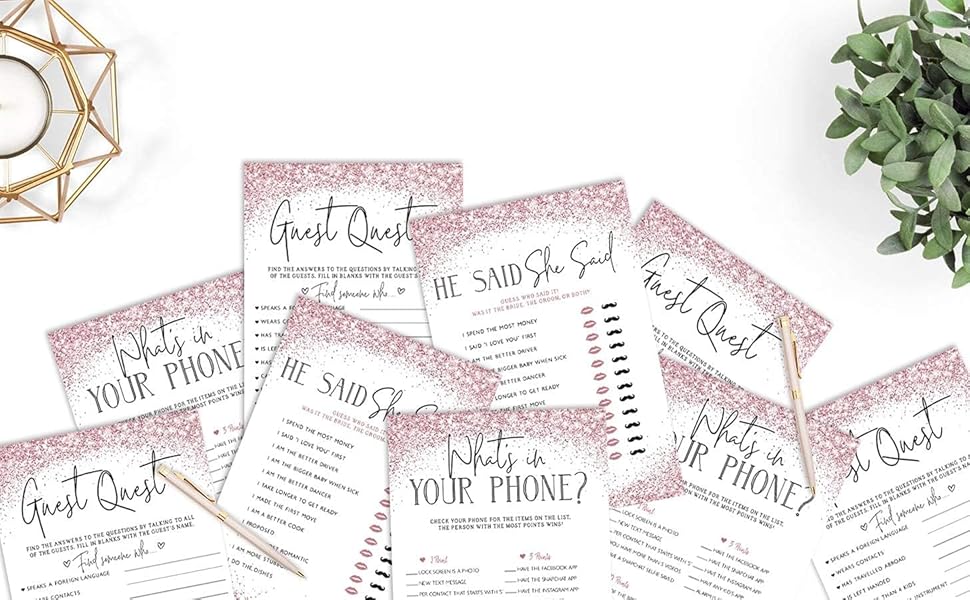 Guest Quest
FIND THE ANSWERS TO THE QUESTIONS BY TALKING
OF THE GUESTS. FILL IN BLANKS WITH THE GUEST'S
Find someone who...
SPEAKS A
WEARS
HAS
IS LE
HE SAID She Said
GUESS WHO SAID IT!
WAS IT THE BRIDE, THE GROOM, OR BOTH?
I SPEND THE MOST MONEY
I SAID "I LOVE YOU" FIRST
I AM THE BETTER DRIVER
I AM THE BIGGER BABY WHEN SICK
BETTER DANCER
LONGER TO GET READY
THE FIRST MOVE
Guest Quest
FIND THE ANSWERS TO THE
OF THE GUESTS.
What's in
YOUR PHONE
CHECK YOUR PHONE FOR THE ITEMS ON THE LIST,
WITH THE MOST POINTS WINS!
3 Points
HE SAID She
GUESS WHO SAID
WAS IT THE BRIDE, THE GROOM,
I SPEND THE MOST MONEY
I SAID "I LOVE YOU" FIRST
I AM THE BETTER DRIVER
I AM THE BIGGER BABY WHEN SICK
I AM THE BETTER DANCER
I TAKE LONGER TO GET READY
I MADE THE FIRST MOVE
I AM A BETTER COOK
I PROPOSED
ROMANTIC
MORE STUBBORN
DO THE DISHES
What's in
YOUR PHONE?
CHECK YOUR PHONE FOR THE ITEMS ON THE LIST.
THE PERSON WITH THE MOST POINTS WINS!
3 Points
LOCK SCREEN IS A PHOTO
NEW TEXT MESSAGE
CONTACT THAT STARTS WITH
YOU HAVE MORE THAN 5 VIDEOS
A SNAPCHAT SELFIE SAVED
HAVE THE FACEBOOK
HAVE THE SNAPCHAT
HAVE AN INSTAGRAM
Points
Guest Quest
FIND THE ANSWERS TO THE QUESTIONS BY TALKING TO ALL
OF THE GUESTS. FILL IN BLANKS WITH THE GUEST'S NAME.
Find someone who...
SPEAKS A FOREIGN LANGUAGE
WEARS CONTACTS
What's in
YOUR PHONE?
CHECK YOUR PHONE FOR THE ITEMS ON THE LIST.
THE PERSON WITH THE MOST POINTS WINS!
2 Points
3 Points
LOCK SCREEN IS A PHOTO
HAVE THE FACEBOOK APP
NEW TEXT MESSAGE
HAVE THE SNAPCHAT APP
PER CONTACT THAT STARTS WITH S
HAVE INSTAGRAM APP
Guest Quest
FIND THE ANSWERS TO THE QUESTIONS BY
OF THE GUESTS. FILL IN BLANKS WITH THE
Find someone who
SPEAKS A FOREIGN LANGUAGE
WEARS CONTACTS
HAS TRAVELLED ABROAD
IS LEFT HANDED
MORE THAN 4 KIDS
INSTRUMENT